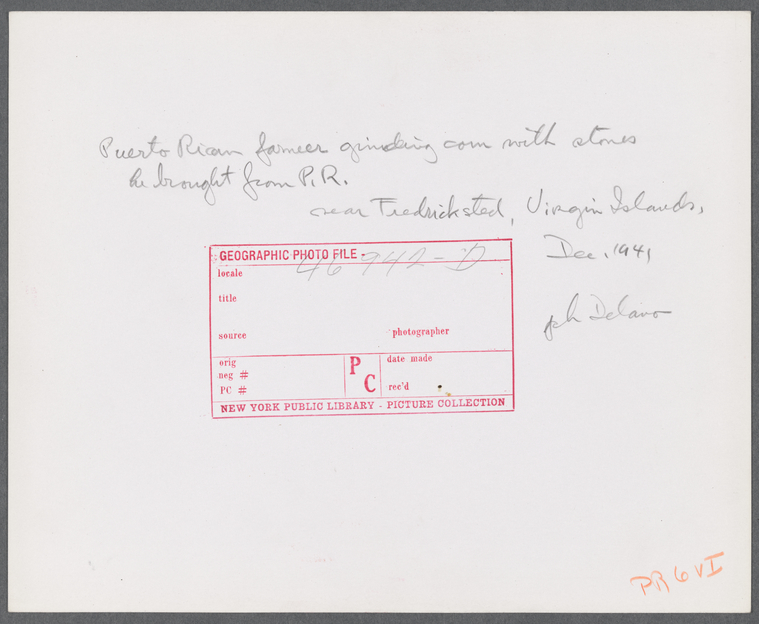 Puerto Rican farmer grinding corn with stones
he brought from P.R.
near Fredricksted, Virgin Islands,
Dec. 1941
ph Delano
GEOGRAPHIC PHOTO FILE -
46942-D
locale
title
source photographer
orig
neg #
PC #
PC
date made
rec'd
NEW YORK PUBLIC LIBRARY - PICTURE COLLECTION
PR6VI